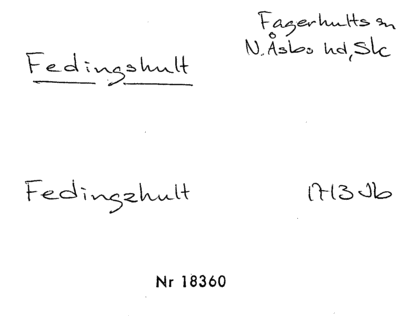 Fagerhults sn
N. Åsbo hd, Sk
Fedingshult
Fedingzhult 1713 Jb
Nr 18360